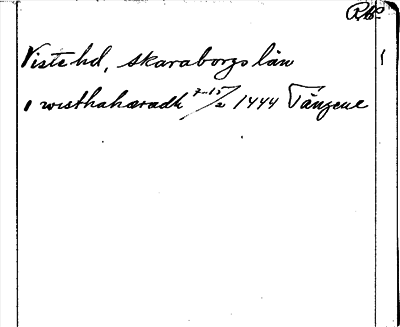 RAp
Viste hd, Skaraborgs län
i wisthahæradh 7-15/2 1444 Tängene